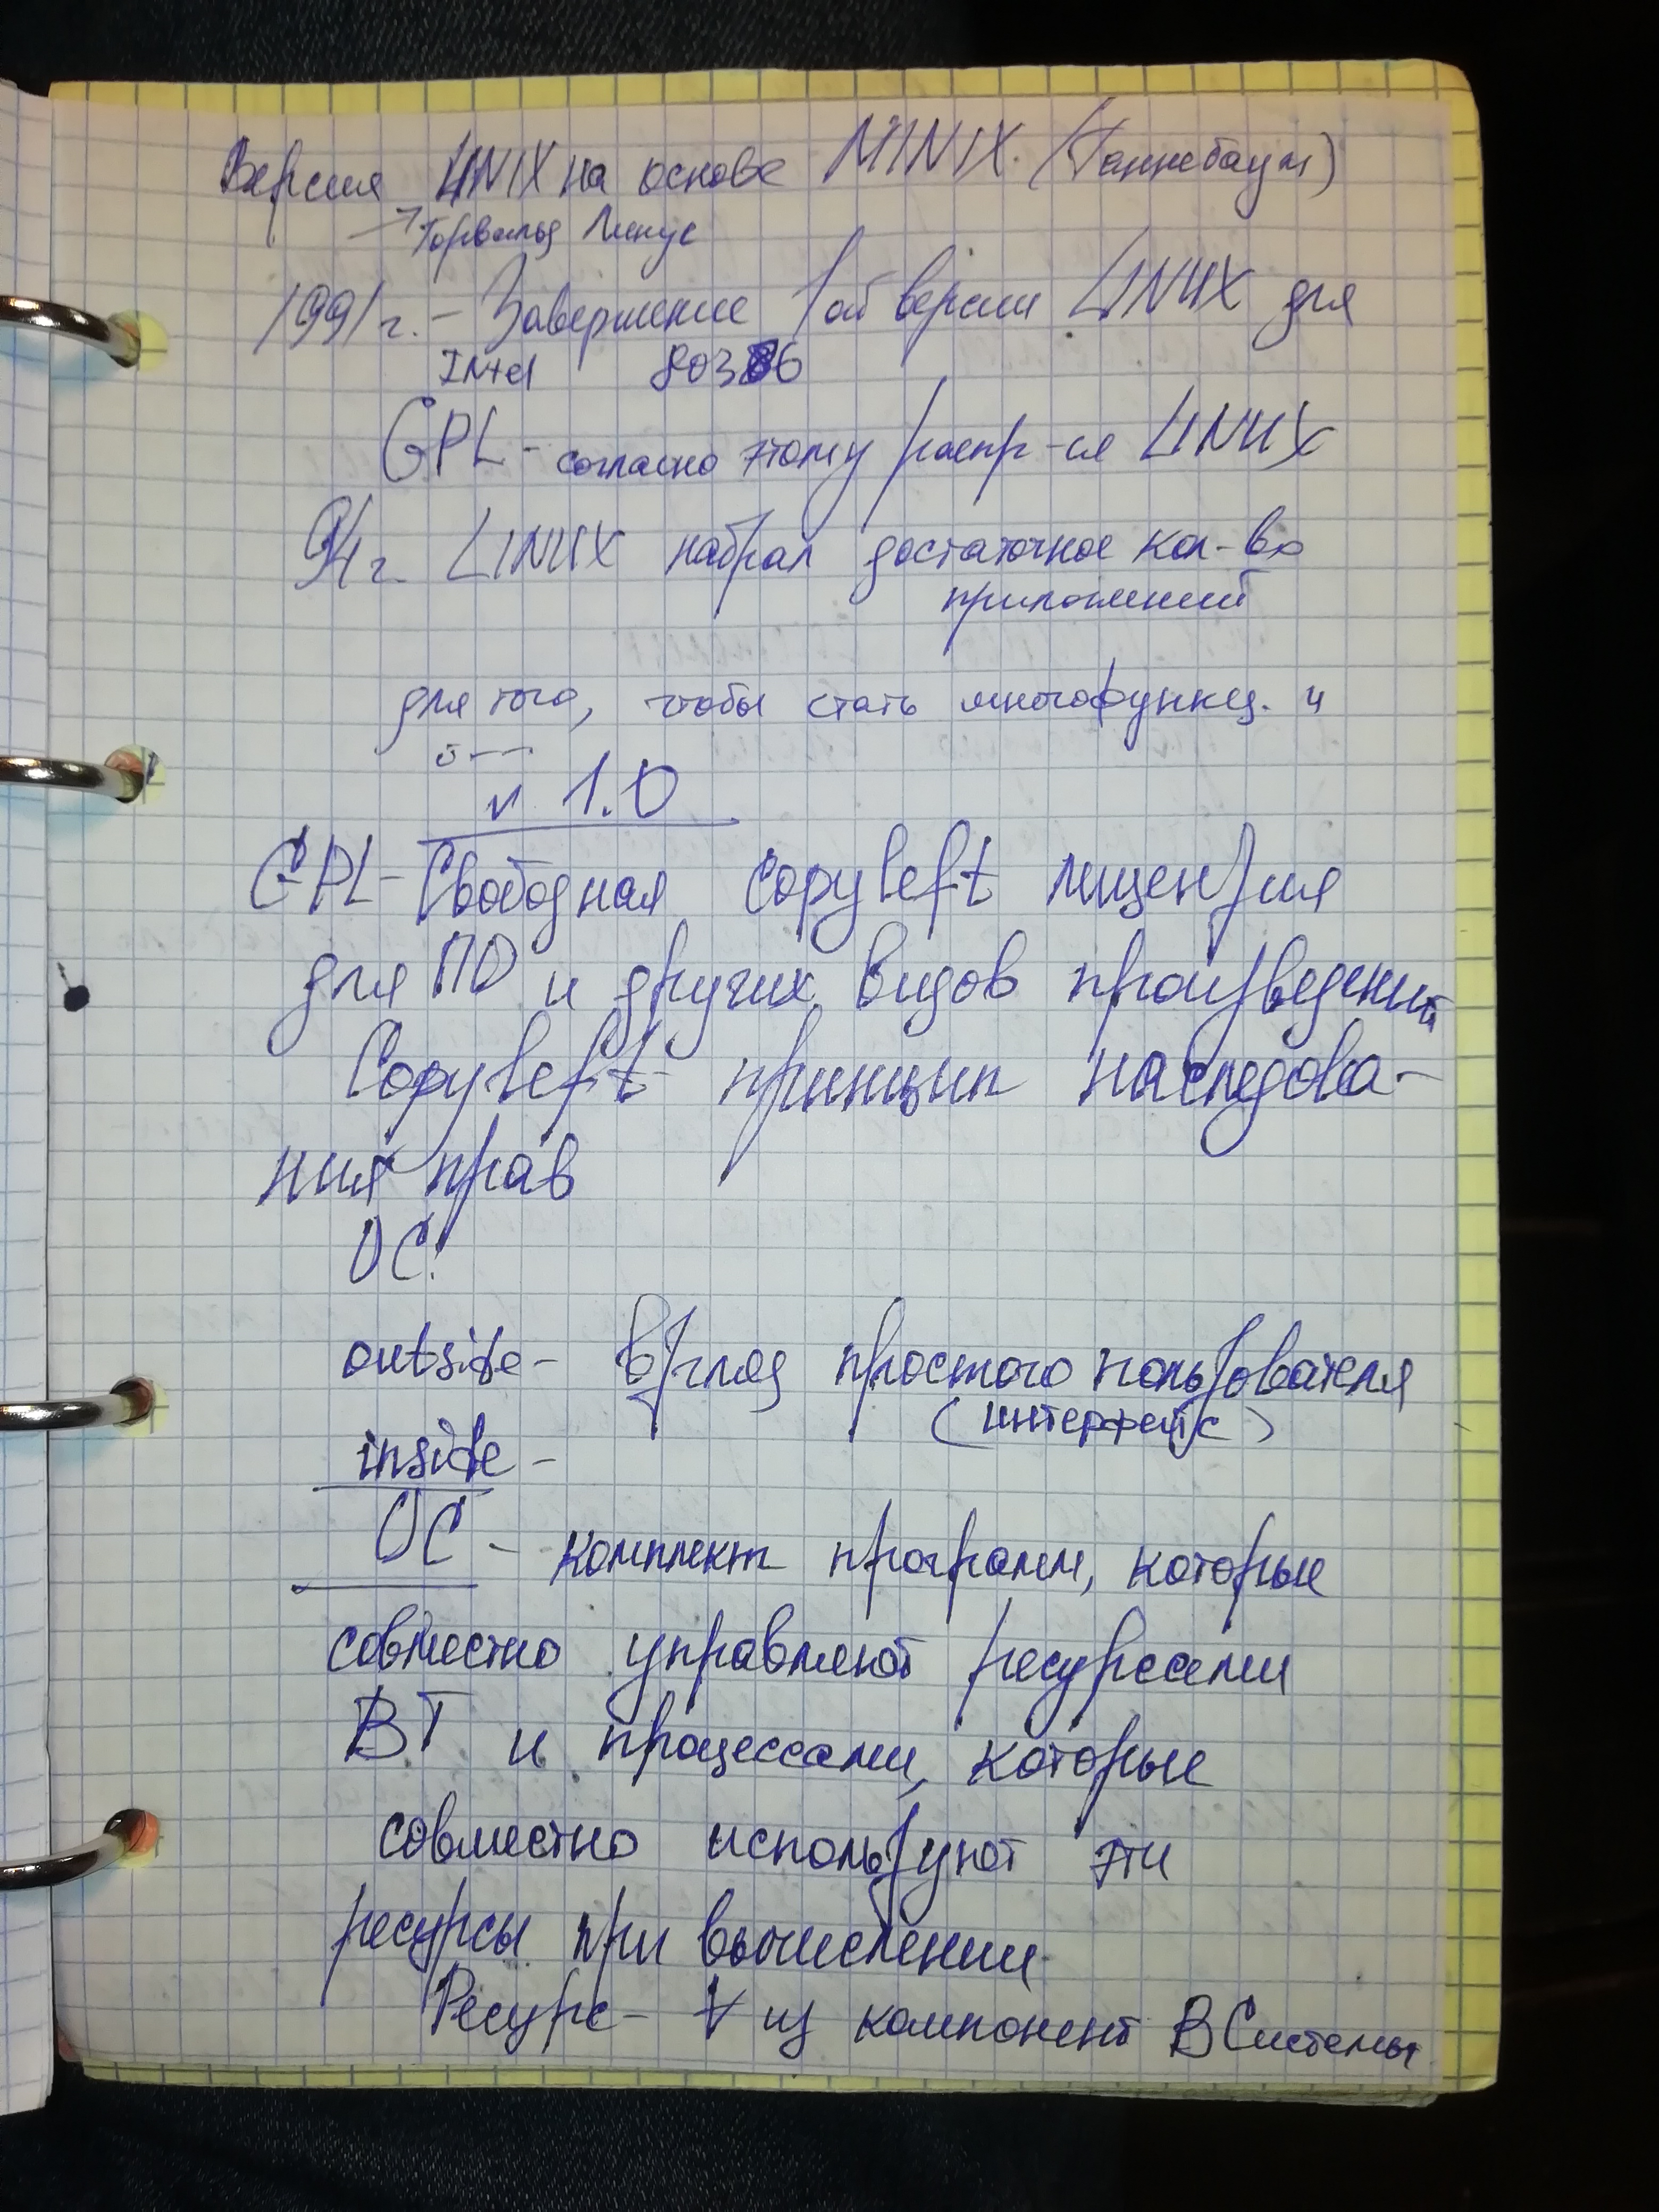 Версия UNIX на основе MINIX. (Танненбаум)
→ Торвальд Линус
1991г. – Завершение 1ой версии LINUX для
INtel 80386
GPL - согласно этому распр-ся LINUX
94г. LINUX набрал достаточное кол-во
приложений
для того, чтобы стать многофункц. и
v 1.0
GPL - Свободная copyleft лицензия
для ПО и других видов произведений
Copyleft - принцип наследова-
ния прав
ОС:
outside - взгляд простого пользователя
(интерфейс)
inside -
ОС - комплект программ, которые
совместно управляют ресурсами
ВТ и процессами, которые
совместно используют эти
ресурсы при вычислении.
Ресурс - ∀ из компонент ВСистемы